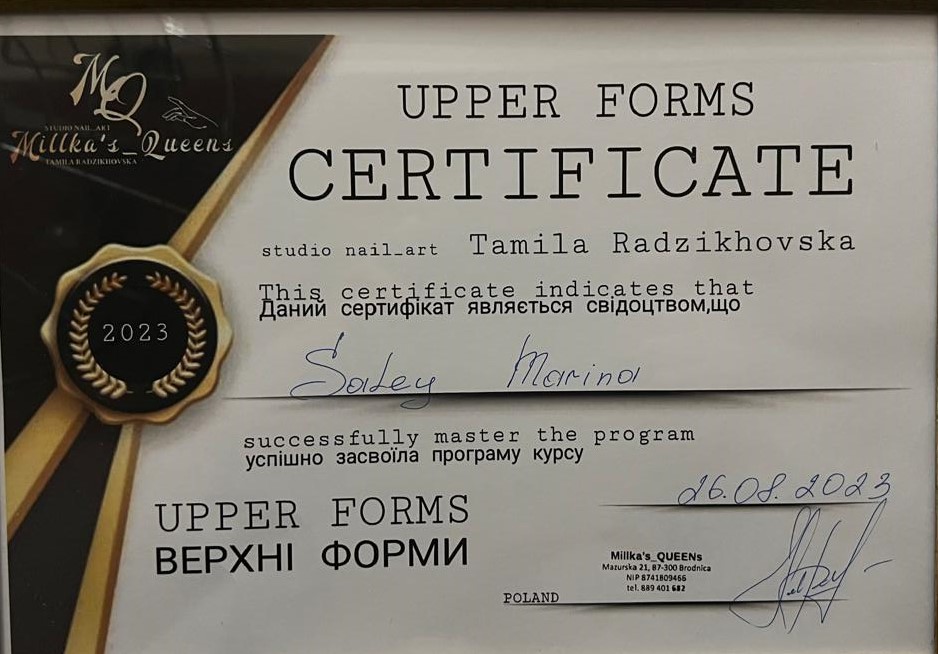 MQ
STUDIO NAIL_ART
Millka's_Queens
TAMILA RADZIKHOVSKA
2023
UPPER FORMS
CERTIFICATE
studio nail_art Tamila Radzikhovska
This certificate indicates that
Даний сертифікат являється свідоцтвом,що
Marina
successfully master the program
успішно засвоїла програму курсу
26.08.2023
UPPER FORMS
ВЕРХНІ ФОРМИ
Millka's_QUEENs
Mazurska 21, 87-300 Brodnica
NIP 8741809466
tel. 889 401 682
POLAND